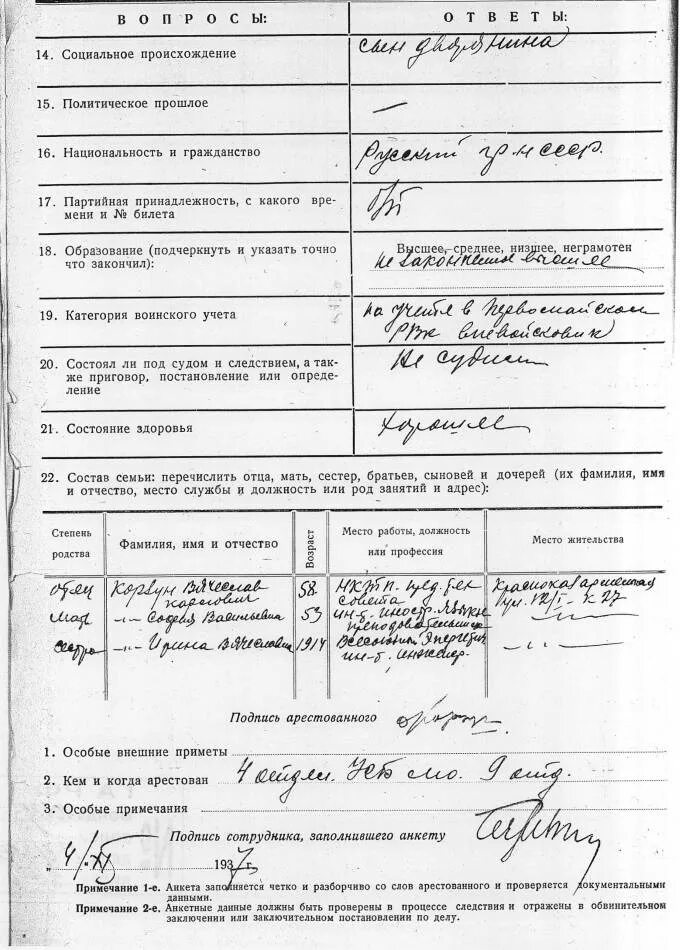 ВОПРОСЫ: ОТВЕТЫ:
14. Социальное происхождение сын дворянина
15. Политическое прошлое —
16. Национальность и гражданство Русский гр-н СССР.
17. Партийная принадлежность, с какого вре-
мени и № билета б/п
18. Образование (подчеркнуть и указать точно
что закончил): Высшее, среднее, низшее, неграмотен
незаконченное высшее
19. Категория воинского учета на учете в Первомайском
РВК вневойсковик
20. Состоял ли под судом и следствием, а так-
же приговор, постановление или опреде-
ление не судим
21. Состояние здоровья хорошее
22. Состав семьи: перечислить отца, мать, сестер, братьев, сыновей и дочерей (их фамилия, имя
и отчество, место службы и должность или род занятий и адрес):
Степень
родства
Фамилия, имя и отчество
Возраст
Место работы, должность
или профессия
Место жительства
отец Корвун Вячеслав 58 НКТП
совета
ул. 12/I - к 27
мать -"- София Васильевна 53 ин-т. иностр. языков
преподовательница -"-
сестра -"- Ирина Вячеславна 1914 Всесоюзный
ин-т. инженер. -"-
Подпись арестованного
1. Особые внешние приметы
2. Кем и когда арестован 4 отдел. УГБ МО. 9 отд.
3. Особые примечания
Подпись сотрудника, заполнившего анкету
„4/XI 1937 г.
Примечание 1-е. Анкета заполняется четко и разборчиво со слов арестованного и проверяется документальными
данными.
Примечание 2-е. Анкетные данные должны быть проверены в процессе следствия и отражены в обвинительном
заключении или заключительном постановлении по делу.